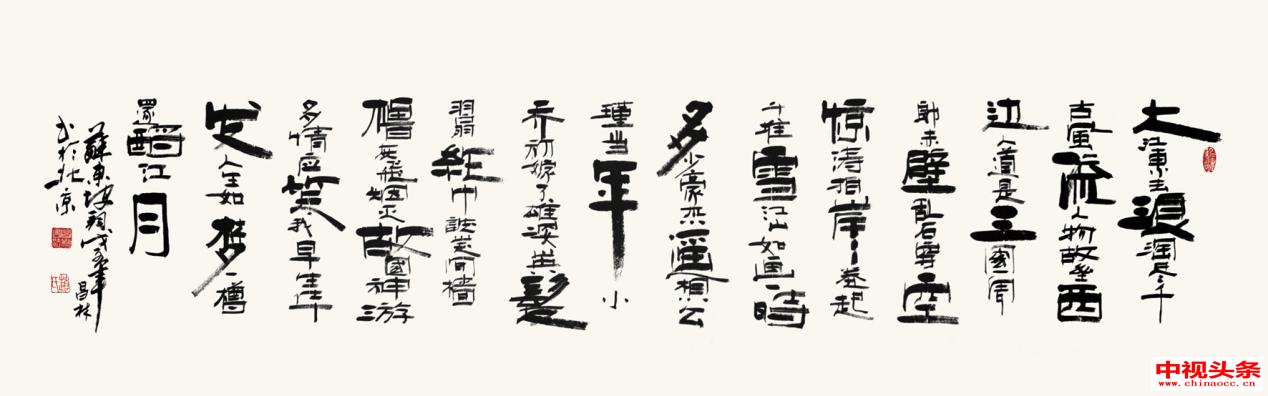 大江東去浪淘尽千
古風流人物故垒西
边人道是三國周
郎赤壁乱石穿空
惊涛拍岸卷起
千堆雪江山如画一時
多少豪杰遥想公
瑾当年小
乔初嫁了雄姿英髮
羽扇纶巾談笑间樯
櫓灰飛烟灭故國神游
多情应笑我早生华
发人生如梦一樽
還酹江月
蘇東坡词 年昌林
书於北京
中视头条
www.chinaocc.cn